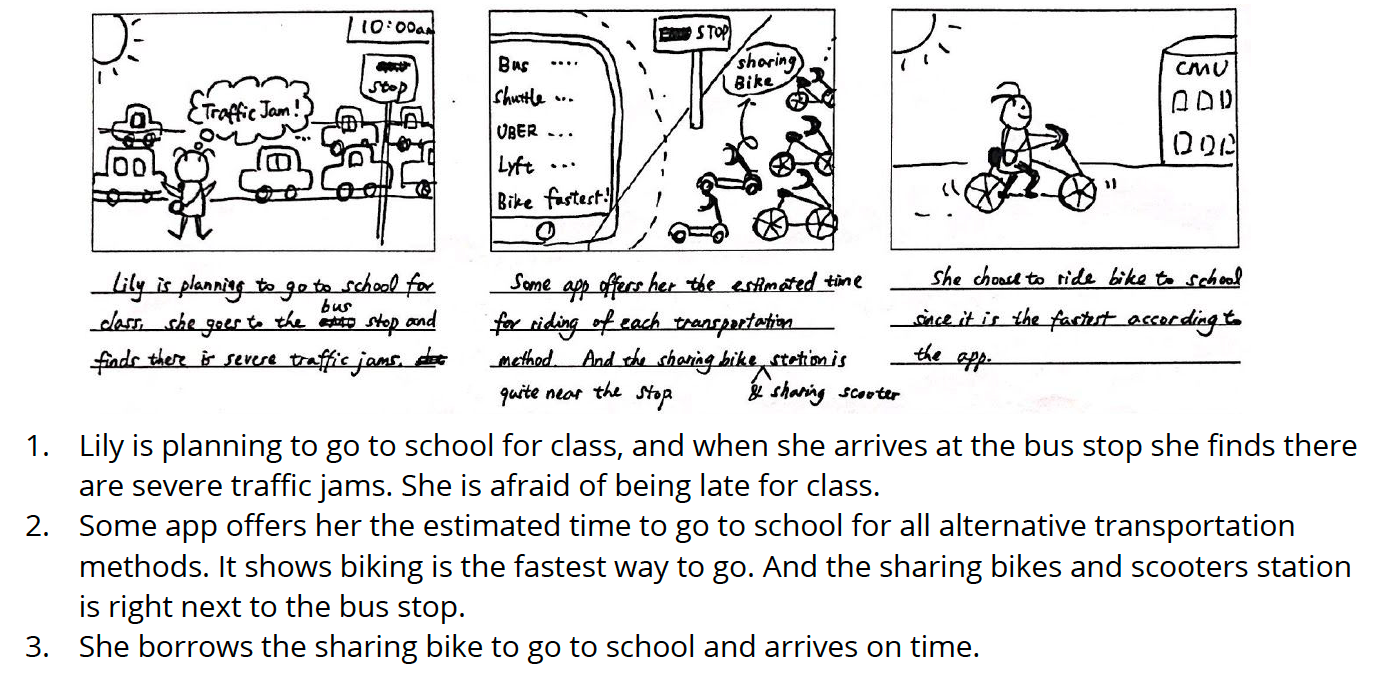 10:00am
Stop
Traffic Jam!
Bus ....
Shuttle ...
UBER ...
Lyft ...
Bike fastest!
STOP
sharing
Bike
CMU
Lily is planning to go to school for
class, she goes to the bus stop and
finds there is severe traffic jams.
Some app offers her the estimated time
for riding of each transportation
method. And the sharing bike & sharing scooter station is
quite near the stop
She choose to ride bike to school
since it is the fastest according to
the app.
1. Lily is planning to go to school for class, and when she arrives at the bus stop she finds there
are severe traffic jams. She is afraid of being late for class.
2. Some app offers her the estimated time to go to school for all alternative transportation
methods. It shows biking is the fastest way to go. And the sharing bikes and scooters station
is right next to the bus stop.
3. She borrows the sharing bike to go to school and arrives on time.